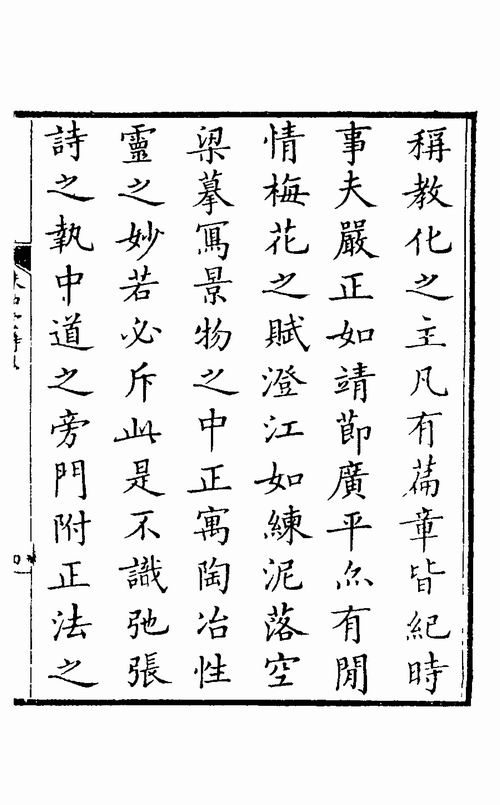 稱教化之主凡有篇章皆紀時
事夫嚴正如靖節廣平尒有閒
情梅花之賦澄江如練泥落空
梁摹寫景物之中正寓陶冶性
靈之妙若必斥此是不識弛張
詩之執中道之旁門附正法之